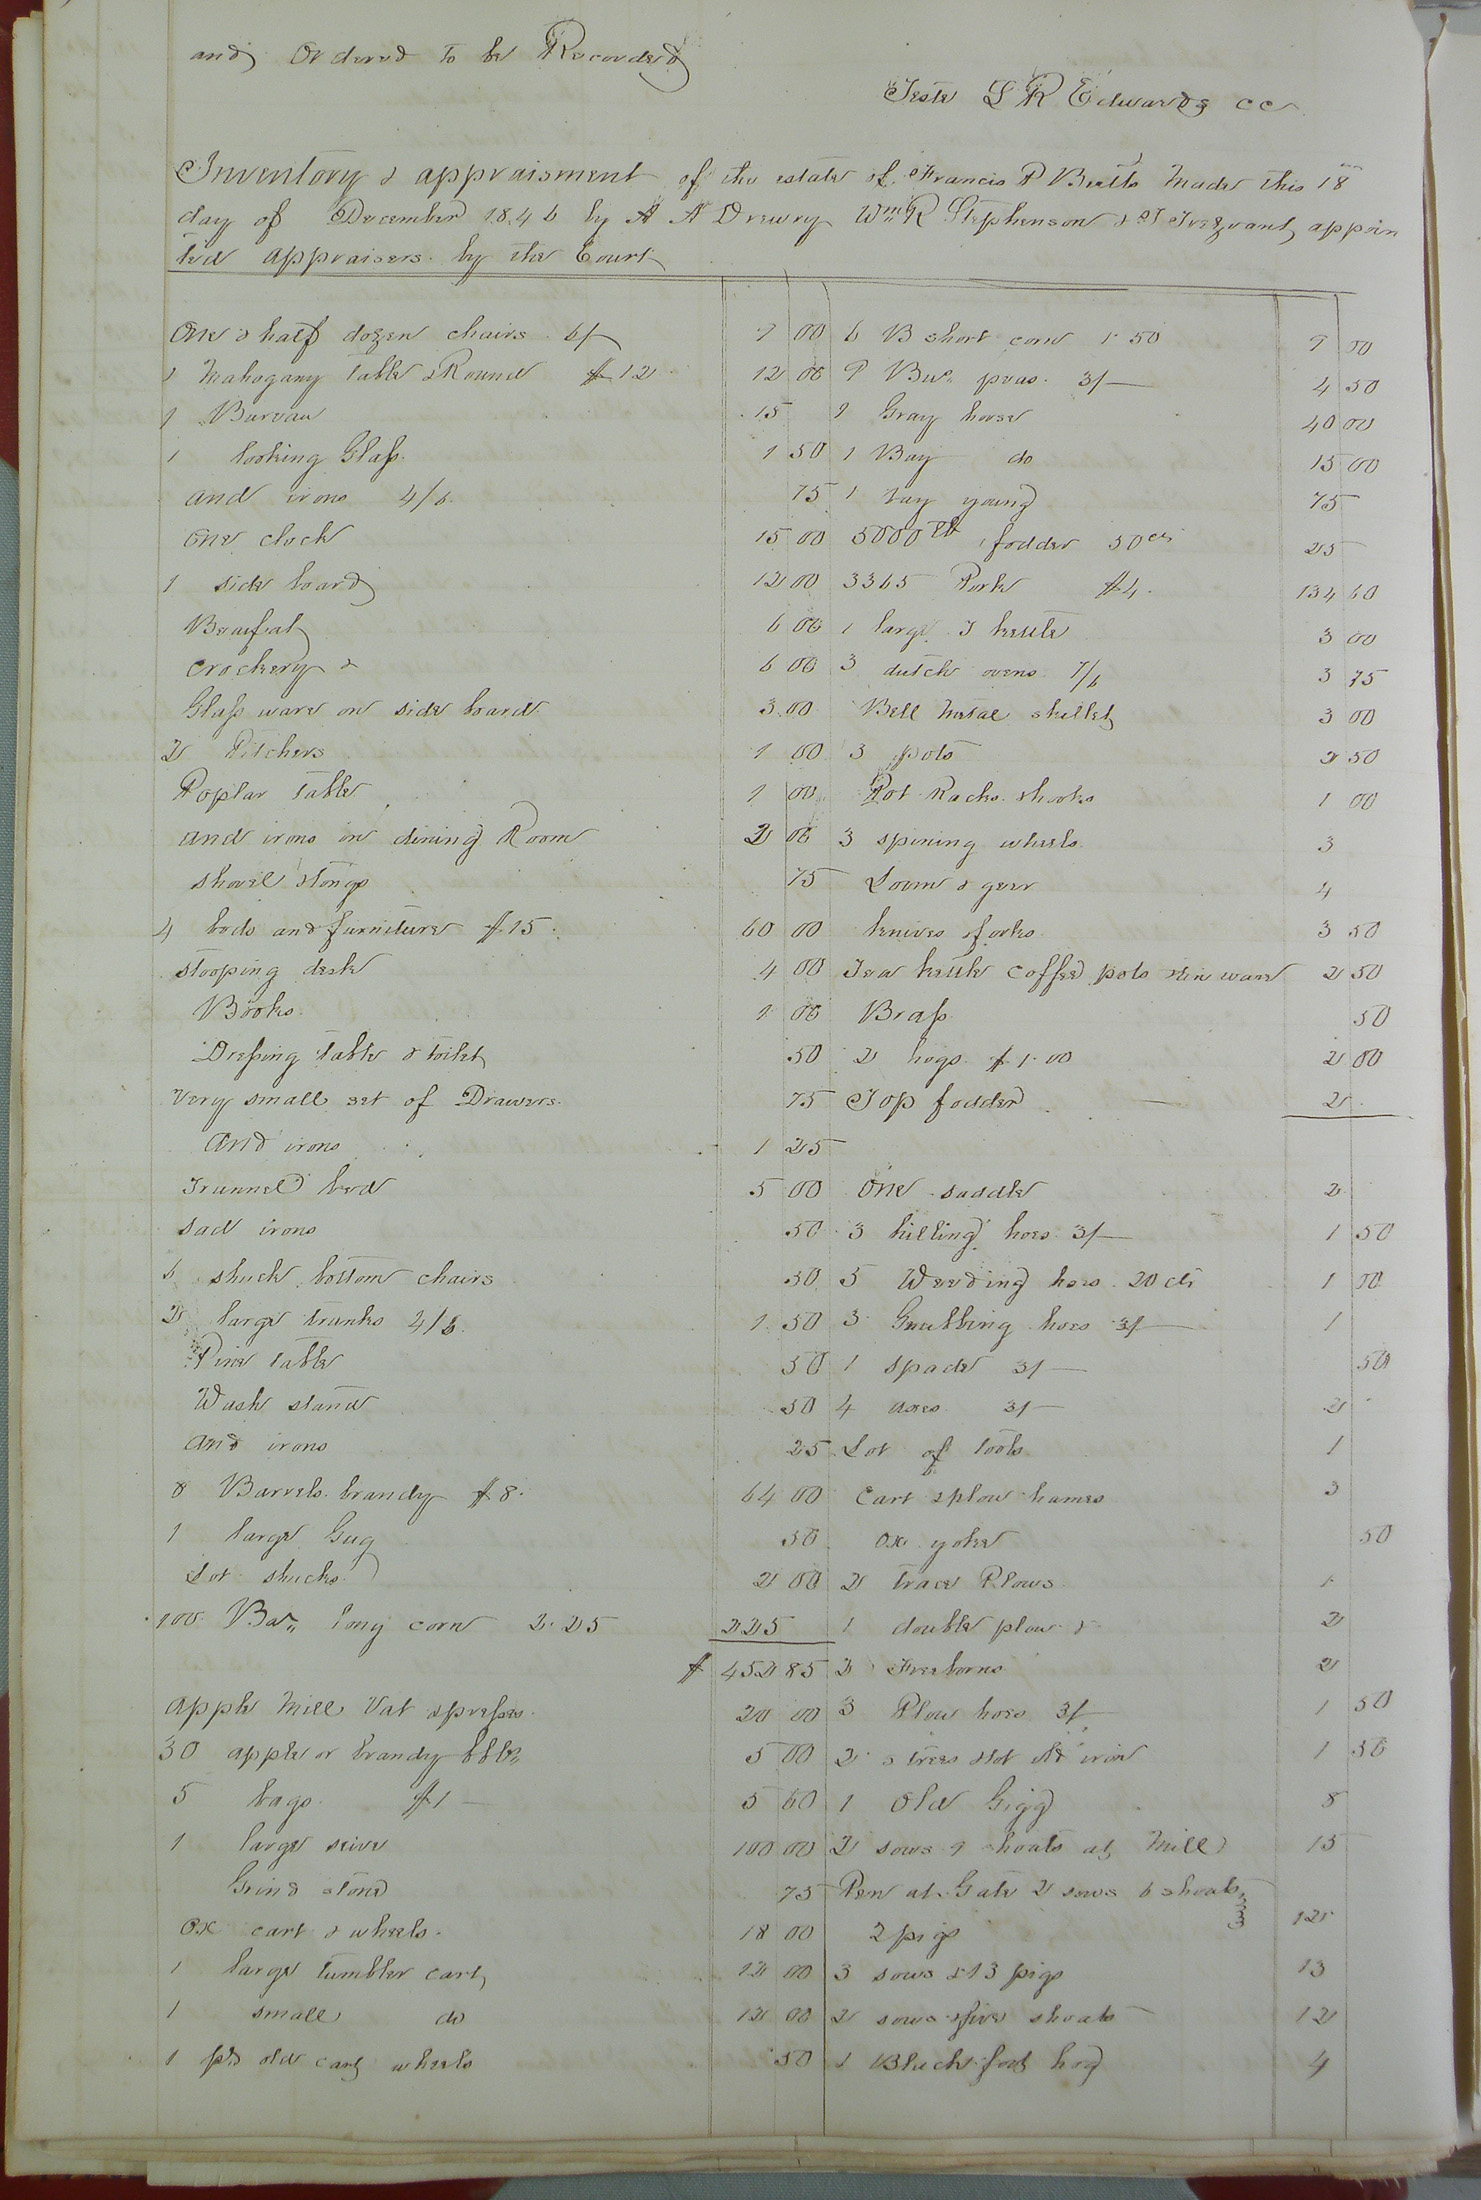 and Ordered to be Recorded
Teste L R Edwards CC
Inventory & appraisment of the estate of Francis P Butts Made this 18
day of December 1846 by A A Drewry Wm R Stephenson & T Trezvant appoin
ted appraisers by the Court
One & half dozen chairs 6/ 9 00
1 Mahogany table & Round $12 12 00
1 Bureau 15
1 looking Glass 1 50
and irons 4/6 75
One clock 15 00
1 side board 12 00
Beaufat 6 00
Crockery & 6 00
Glass ware on side board 3 00
2 Pitchers 1 00
Poplar table 1 00
and irons in dining Room 2 00
shovel & tongs 75
4 beds and furniture $15 60 00
stooping desk 4 00
Books 1 00
Dressing table & toilet 50
Very small set of Drawers 75
And irons 1 25
Trunnel bed 5 00
sad irons 50
6 shuck bottom chairs 50
2 large trunks 4/6 1 50
Pine table 50
Wash stand 50
and irons 25
8 Barrels brandy $8 64 00
1 large Gug 50
Lot shucks 2 00
100 Bar long corn 2.25 225
$ 452 85
Apple Mill Vat & presses 20 00
30 apple or brandy bbls 5 00
5 bags $1 5 00
1 large seive 100 00
Grind stone 75
Ox cart & wheels 18 00
1 large tumbler cart 12 00
1 small do 12 00
1 pr old cart wheels 50
6 B short corn 1.50 9 00
9 Bus peas 3/ 4 50
1 Gray horse 40 00
1 Bay do 15 00
1 bay young 75
5000 lb fodder 50cts 25
3365 Pork $4 134 60
1 large I kettle 3 00
3 dutch ovens 7/6 3 75
Bell Metal skillet 3 00
3 pots 2 50
Pot Racks & hooks 1 00
3 spining wheels 3
Loom & gear 4
knives & forks 3 50
Tea kettle coffee pots & tin ware 2 50
Brass 50
2 hogs $1.00 2 00
Top fodder 2
One saddle 2
3 hilling hoes 3/ 1 50
5 Weeding hoes 20 cts 1 00
3 Grubbing hoes 1
1 spade 3/ 50
4 axes 3/ 2
Lot of tools 1
Cart & plow hames 3
Ox yoke 50
2 trace Plows 1
1 double plow & 2
2 Freeborns 2
3 Plow hoes 3/ 1 50
2 s trees & lot old iron 1 50
1 Old Gigg 8
2 sows 9 shoats at Mill 15
Pen at Gate 2 sows 6 shoats
2 pigs 12
3 sows & 13 pigs 13
2 sows & five shoats 12
1 Black foot hog 4